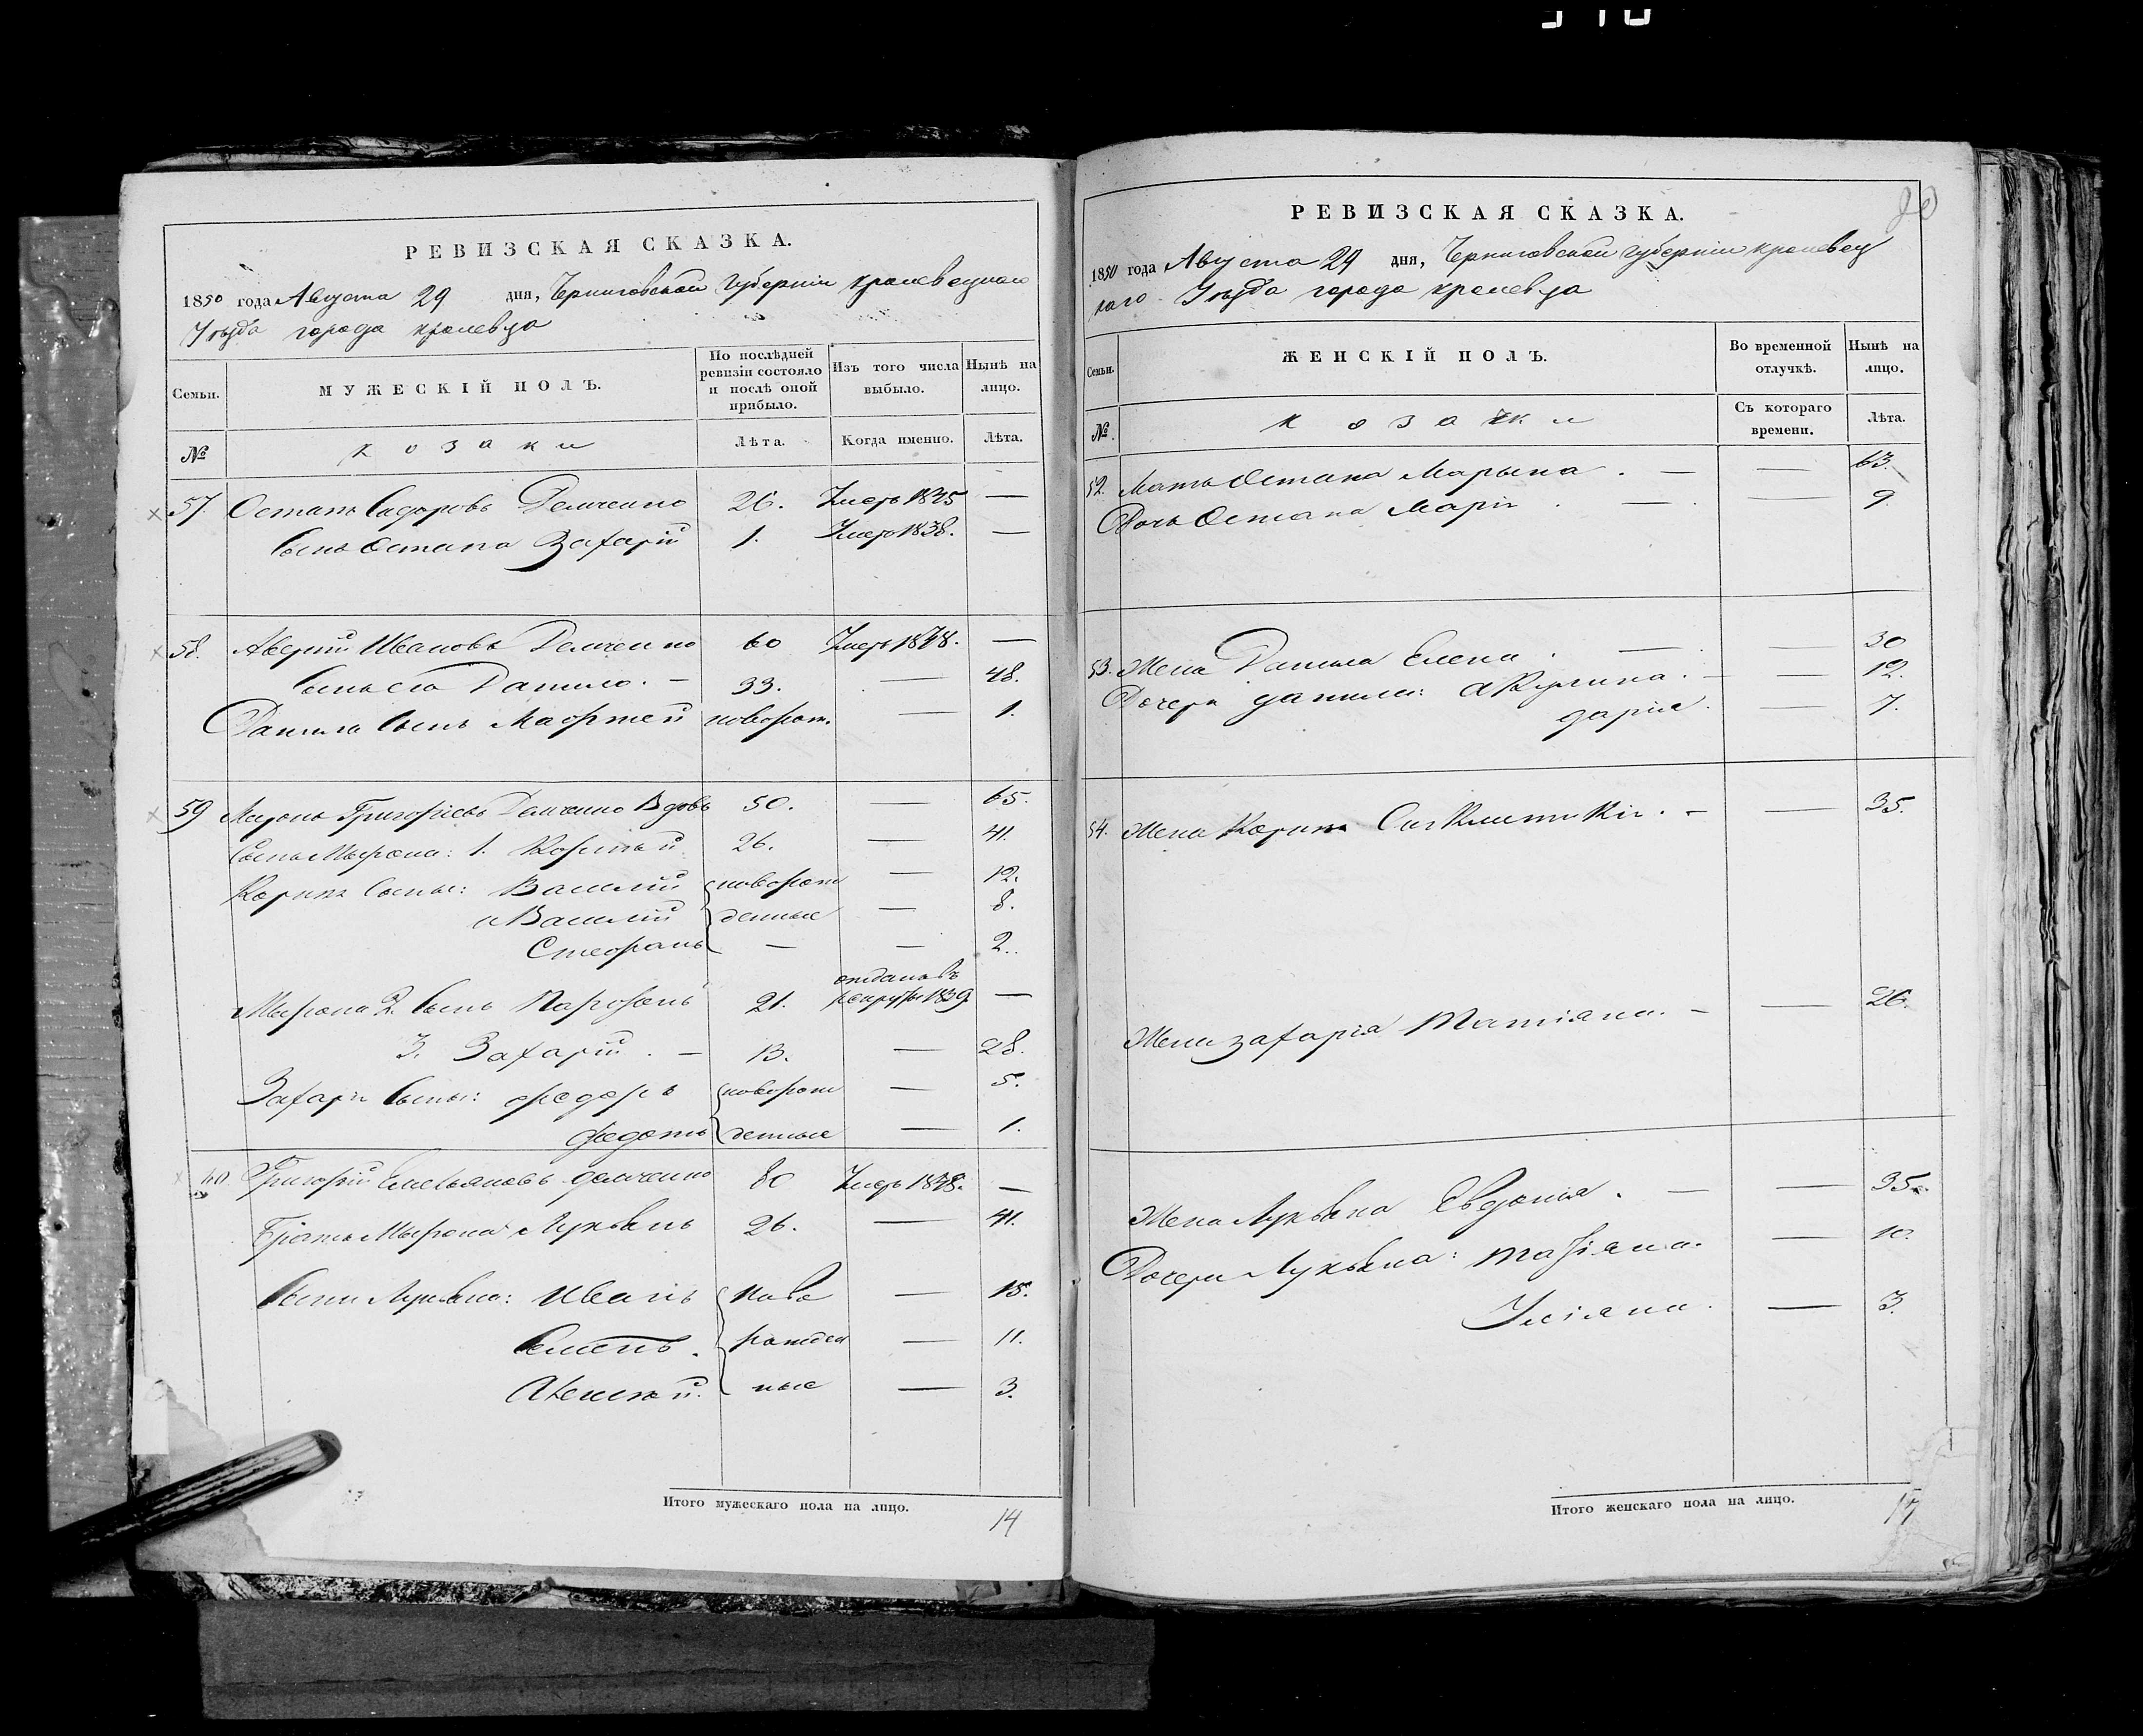 РЕВИЗСКАЯ СКАЗКА.
1850 года Августа 29 дня, Черниговской Губерніи Кролевецкаго
Уѣзда города Кролевца
Семьи.
МУЖЕСКІЙ ПОЛЪ.
По послѣдней ревизіи состояло и послѣ оной прибыло.
Изъ того числа выбыло.
Нынѣ на лицо.
№
козаки
Лѣта.
Когда именно.
Лѣта.
57. Остапъ Сидоровъ Демченко 26. Умеръ 1835 —
Сынъ Остапа Захарій 1. Умеръ 1838. —
58. Аверкій Ивановъ Демченко 60 Умеръ 1848. —
Сынъ его Данило. — 33. — 48.
Данила Сынъ Маофтей новорож. — 1.
59 Миронъ Григорьевъ Демченко Вдовъ 50. — 65.
Сынъ Мырона: 1. Корній 26. — 41.
Корнія Сыны: Василій новорож — 12.
и Василій денные — 8.
Стефанъ — — 2.
Мырона 2. Сынъ Парфенъ 21. отданъ въ рекруты 1839 —
3. Захарій. — 13. — 28.
Захарія Сыны: Федоръ новорож — 5.
Федотъ денные — 1.
60. Григорій Емельяновъ Демченко 80 Умеръ 1848. —
Братъ Мырона Лукьянъ 26. — 41.
Сыны Лукьяна: Иванъ Ново — 15.
Семенъ. рожден — 11.
Алексѣй. ные — 3.
Итого мужескаго пола на лицо. 14
РЕВИЗСКАЯ СКАЗКА.
1850 года Августа 29 дня, Черниговской Губерніи Кролевец
каго Уѣзда города Кролевца
Семьи.
ЖЕНСКІЙ ПОЛЪ.
Во временной отлучкѣ.
Нынѣ на лицо.
№.
козачки
Съ котораго времени.
Лѣта.
52. Мать Остапа Марына. — — 63.
Дочь Остапа Марія. — — 9.
53. Жена Данила Елена. — — 30
Дочери Данила: Акулина. — — 12.
Дарія. — 7.
54. Жена Корнія — — 35.
Жена Захарія Татіяна. — — 26.
Жена Лукьяна Евдокія. — — 35.
Дочери Лукьяна: — 10.
Уліяна. — 3.
Итого женскаго пола на лицо.